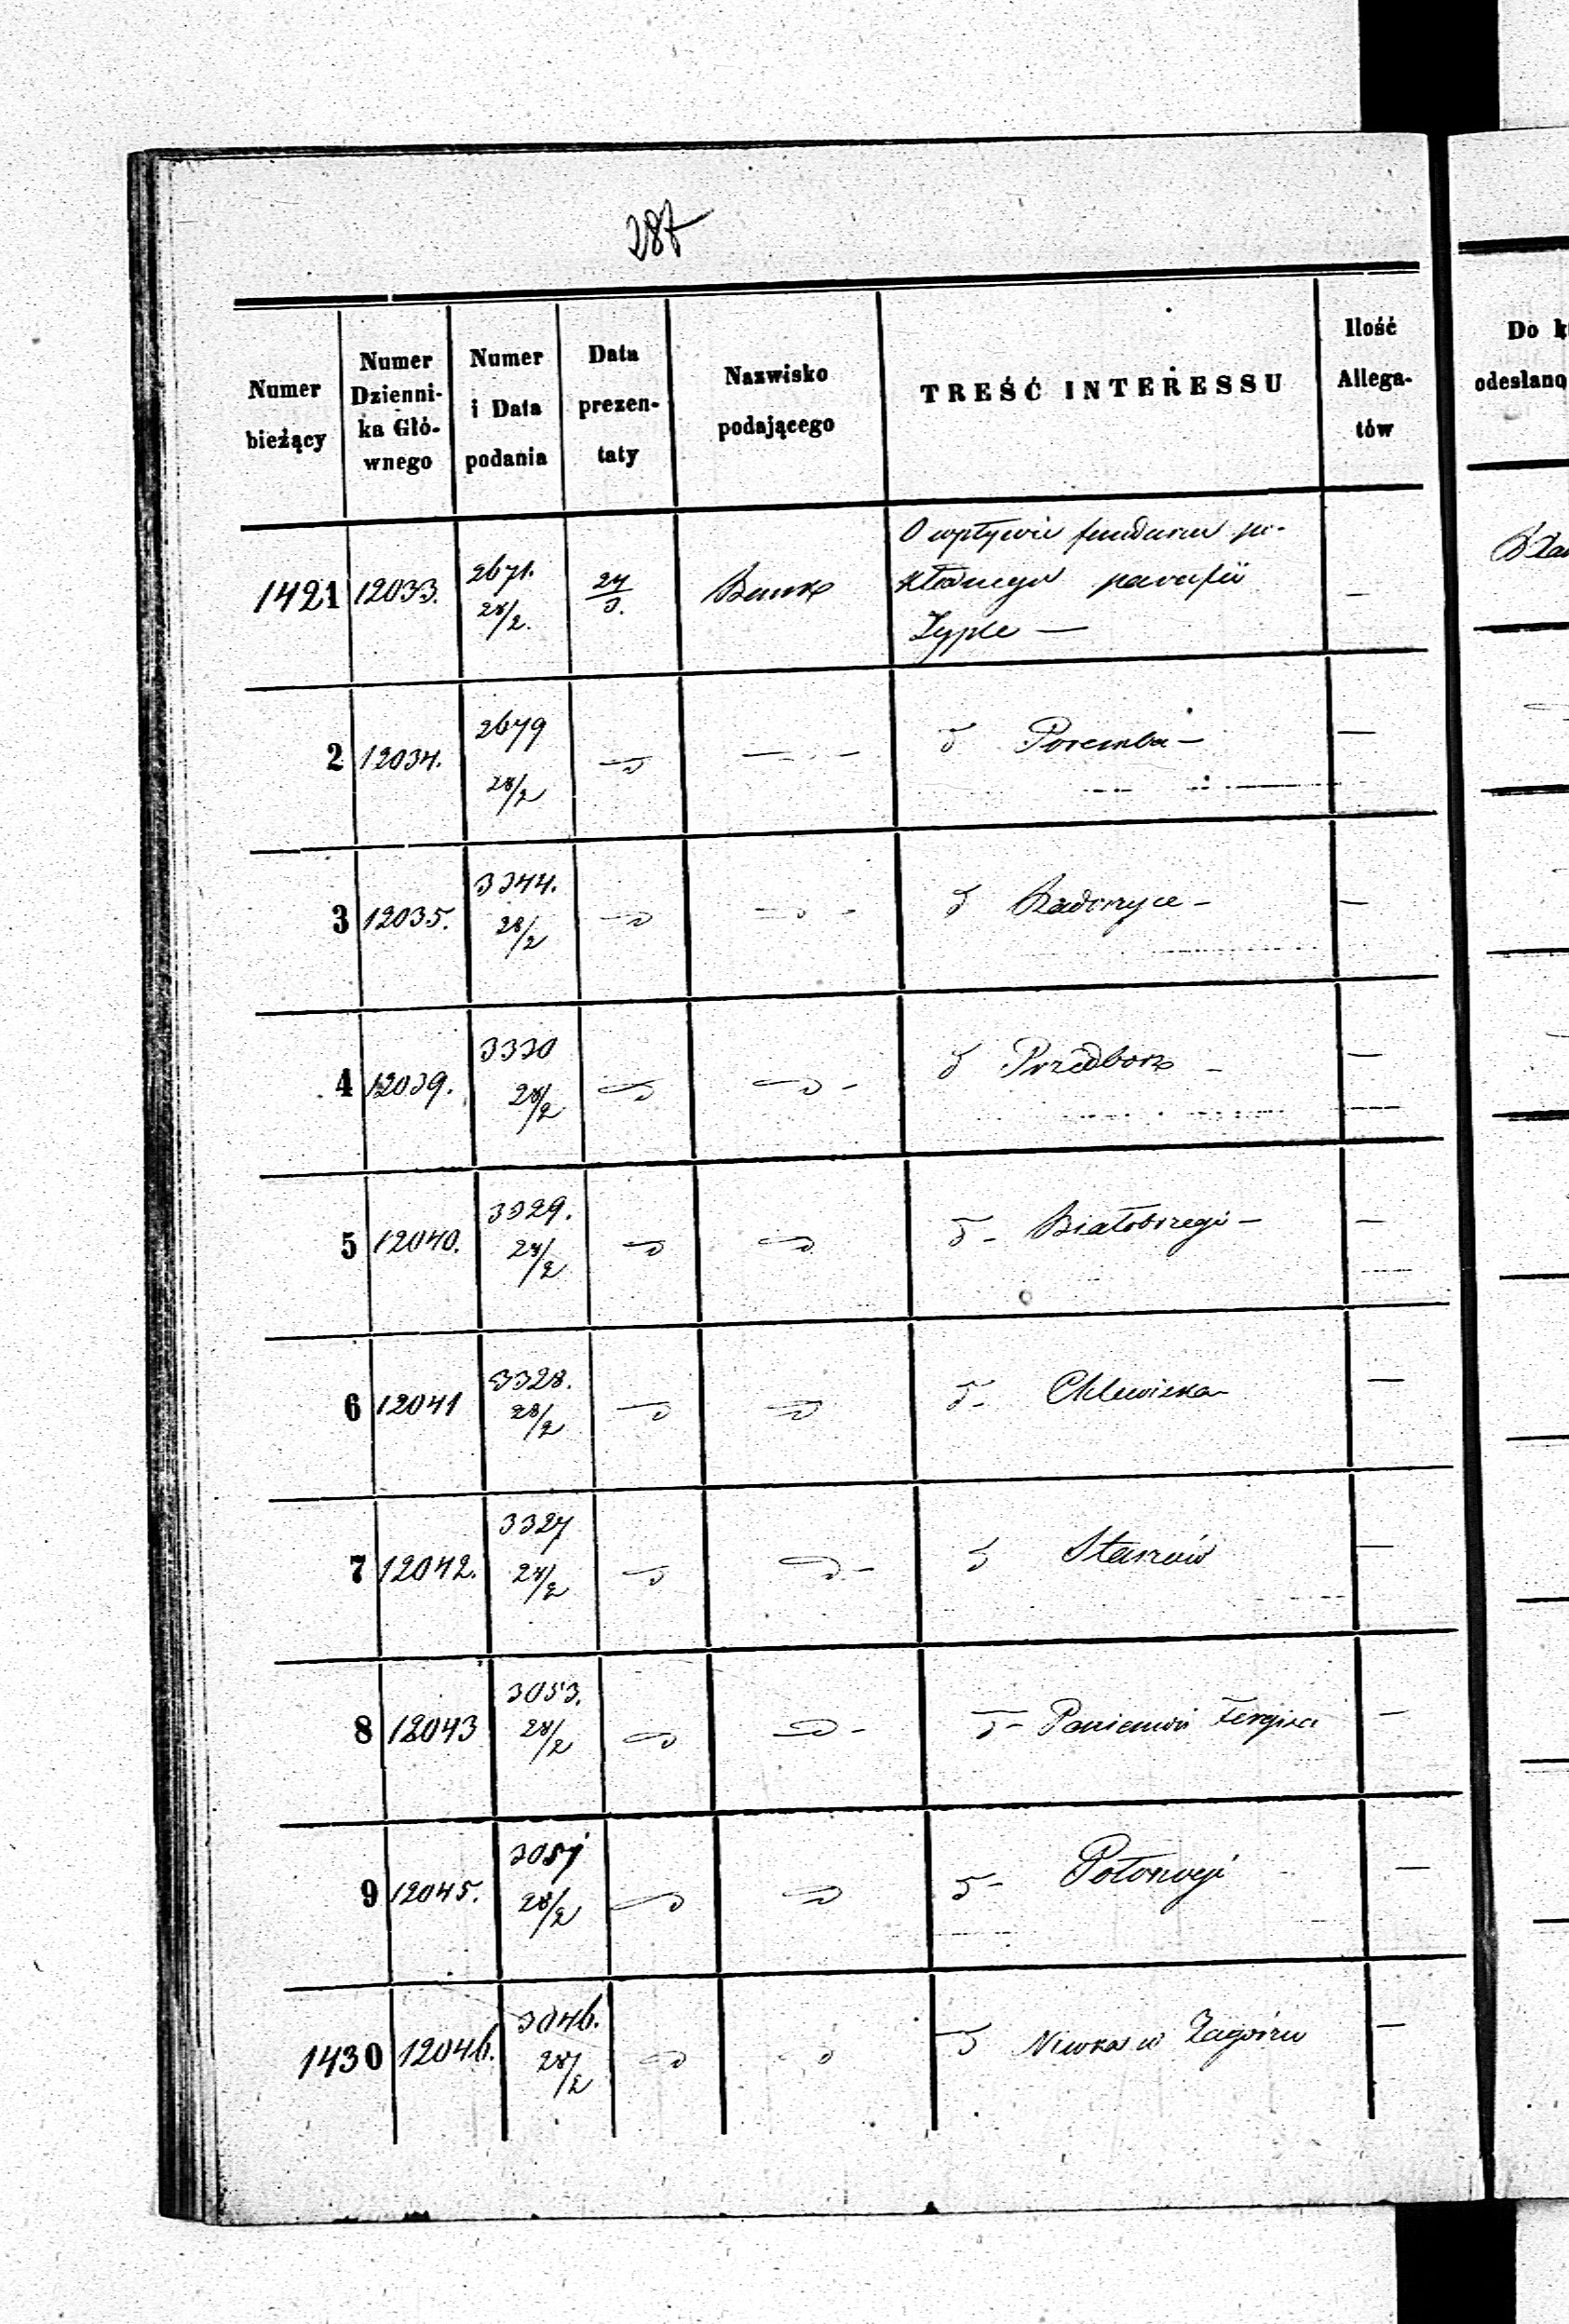 287
Numer bieżący
Numer Dzienni- ka Głó- wnego
Numer i Data podania
Data prezen- taty
Nazwisko podającego
TREŚĆ INTERESSU
Ilość Allega- tów
Do k
odesłano
1421 12033. 2671. 28/2. 27/3. Bank O wpływie funduszu po-
kładnego parafii —
Zyple —
2 12034. 2679 28/2 — d — d Poremba — —
3 12035. 3344. 28/2 — d — d Radoszyce — —
4 12039. 3330 28/2 — d — d — d Przedborz — —
5 12040. 3329. 28/2 — d — d d — Białobrzegi — —
6 12041 3328. 28/2 — d — d d — Chlewiska —
7 12042. 3327 28/2 — d — d — d —
8 12043 3053. 28/2 — d — d — d — Poniemoń —
9 12045. 28/2 — d — d d — —
1430 12046. 3046. 28/2 — d d d Niwka w Zagórzu —